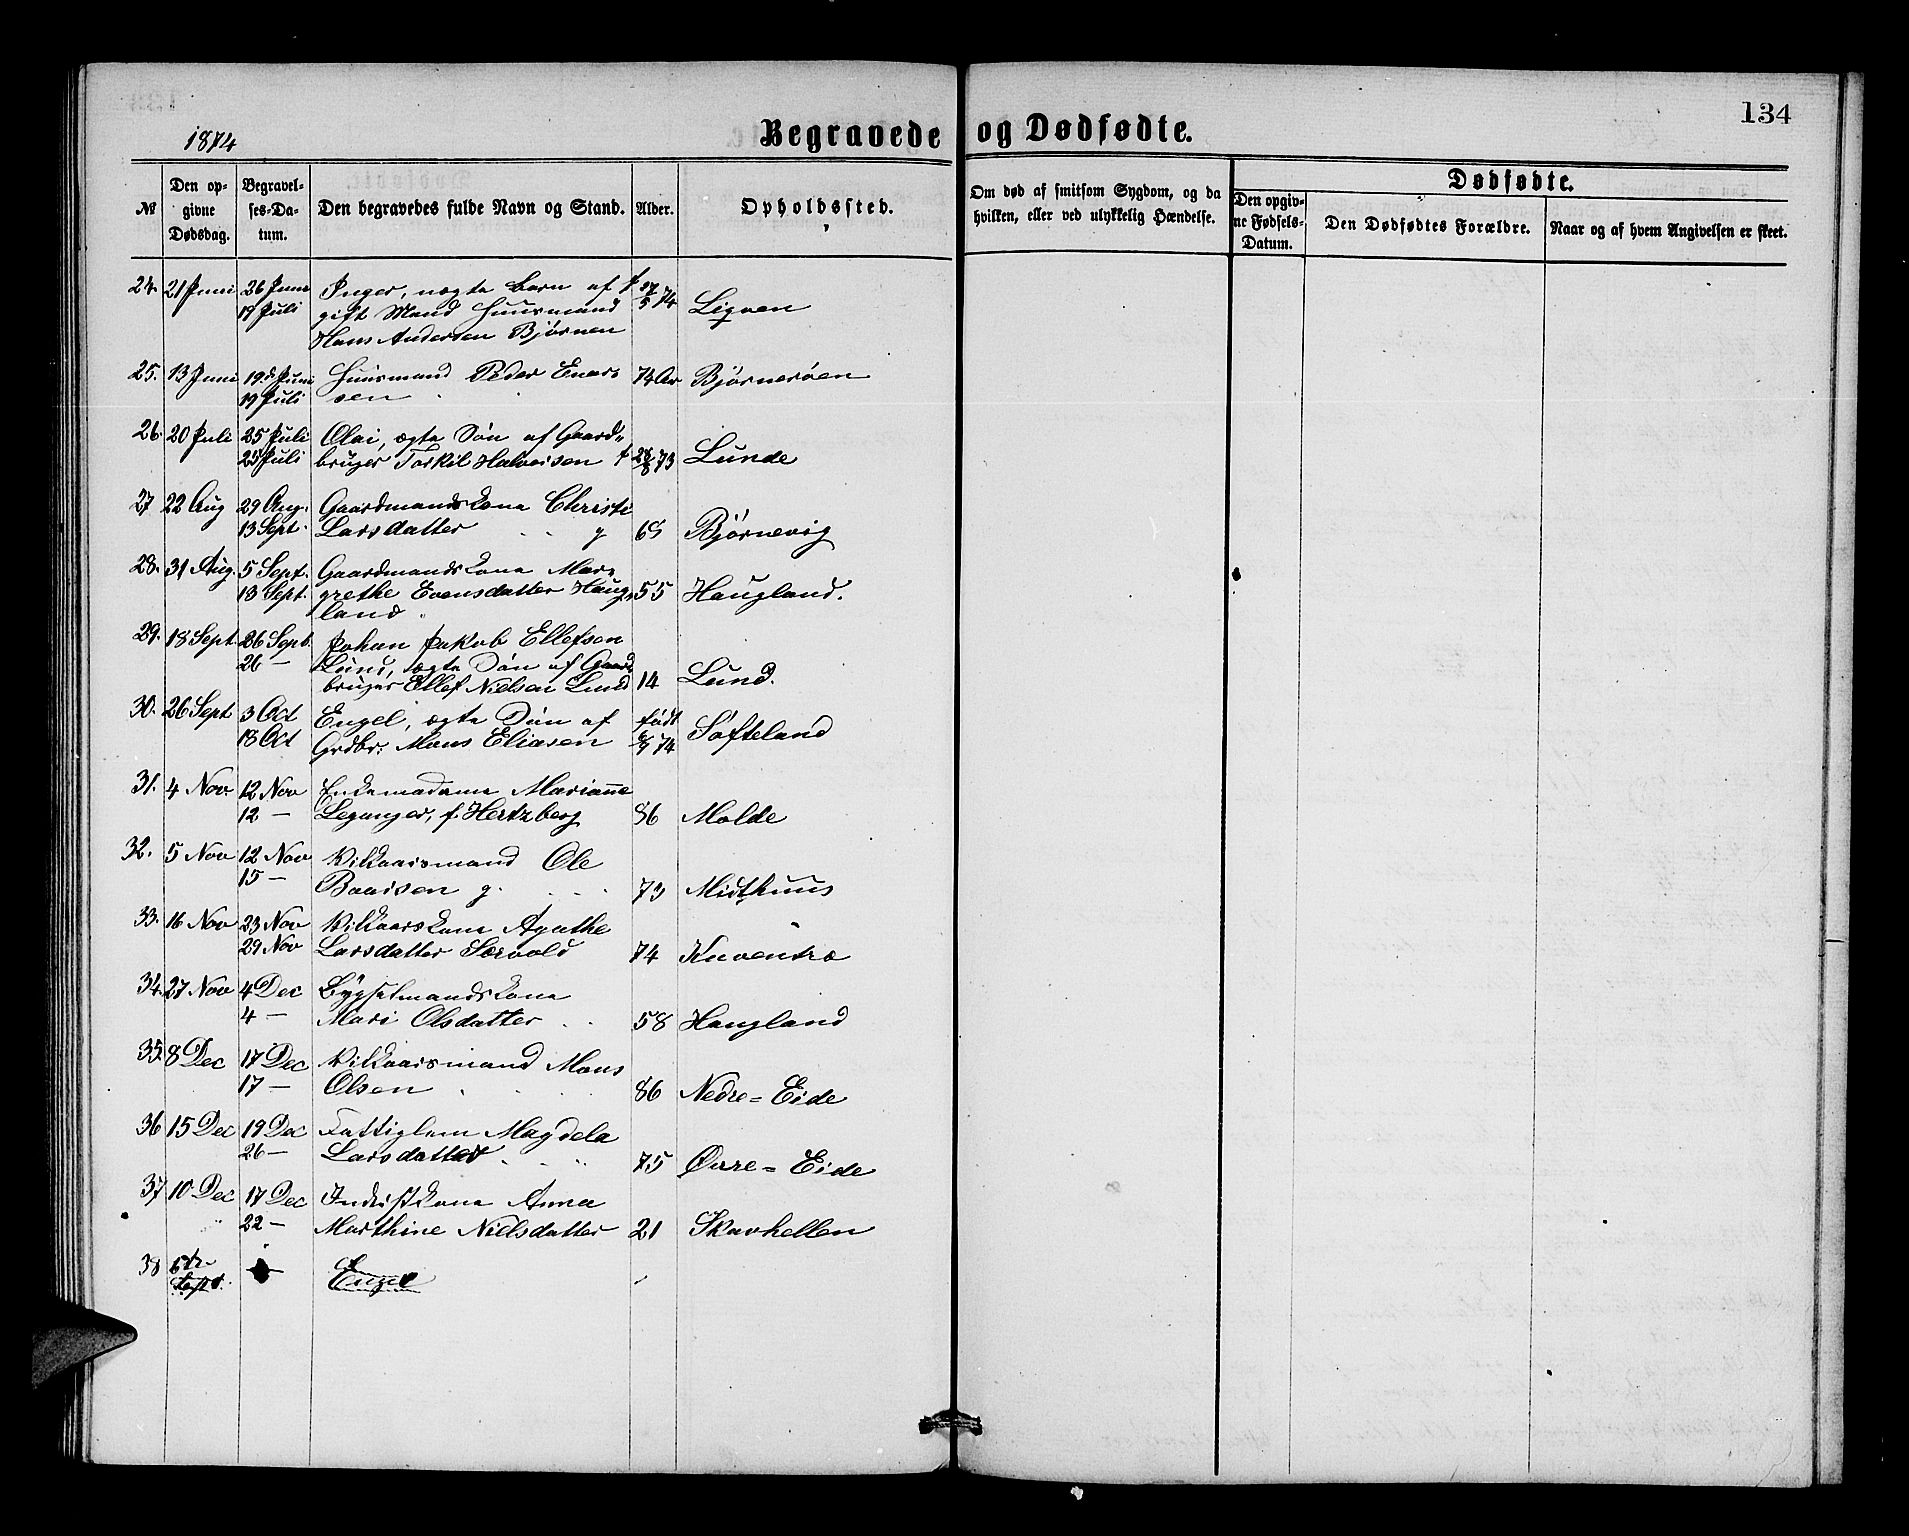 134
1874
Begravede og Dødfødte.
№
Den op-
givne
Dødsdag.
Begravel-
ses-Da-
tum.
Den begravedes fulde Navn og Stand.
Alder.
Opholdssted.
Om død af smitsom Sygdom, og da
hvilken, eller ved ulykkelig Hændelse.
Dødfødte.
Den opgiv-
ne Fødsels-
Datum.
Den Dødfødtes Forældre.
Naar og af hvem Angivelsen er skeet.
24. 21 Juni 26 Juni Inger, uægte barn af f 27/5 74
19 Juli gift Mand Huusmand Ligven
Hans Andersen Bjørnen
25. 13 Juni 19de Juni Huusmand Peder Eners 74 Ar Bjørnerøen
19 Juli sen
26. 20 Juli 25 Juli Olai, ægte Søn af Gaard-
25 Juli bruger Torkil Halversen f 73 Lunde
27 22 Aug 29 Aug. Gaardmandskone Christi
13 Sept. Larsdatter g 69 Bjørnevig
28. 31 Aug. 5 Sept. Gaardmandskone Mar-
13 Sept. grethe Evensdatter Haug- 55 Haugland.
land
29. 18 Sept. 26 Sept. Johan Jakob Ellefsen
26 — Lund, ægte Søn af Gaard
bruger Ellef Nielsen Lund 14 Lund.
30. 26 Sept 3 Oct Engel, ægte Søn af født
18 Oct Grdbr. Mons Eliasen 74 Søfteland
31. 4 Nov. 12 Nov Enkemadame Marianne
12 — Leganger, f. Hertzberg 86 Molde
32. 5 Nov 12 Nov Vilkaarsmand Ole
15 — Baarsen g. 73 Midthuus
33. 16 Nov 23 Nov Vilkaarskone Agathe
29 Nov Larsdatter Særvold 74 Kuventræ
34. 27 Nov 4 Dec Bygselmandskone
4 — Mari Olsdatter 58 Haugland
35. 8 Dec 17 Dec Vilkaarsmand Mons
17 — Olsen 86 Nedre=Eide
36 15 Dec 19 Dec Fattiglem Magdela
26 — Larsdatter 75 Øvre=Eide
37 10 Dec 17 Dec Inderstkone Anna
22 — Marthine Nielsdatter 21 Skavhellen
38 6te
Sept. Engel